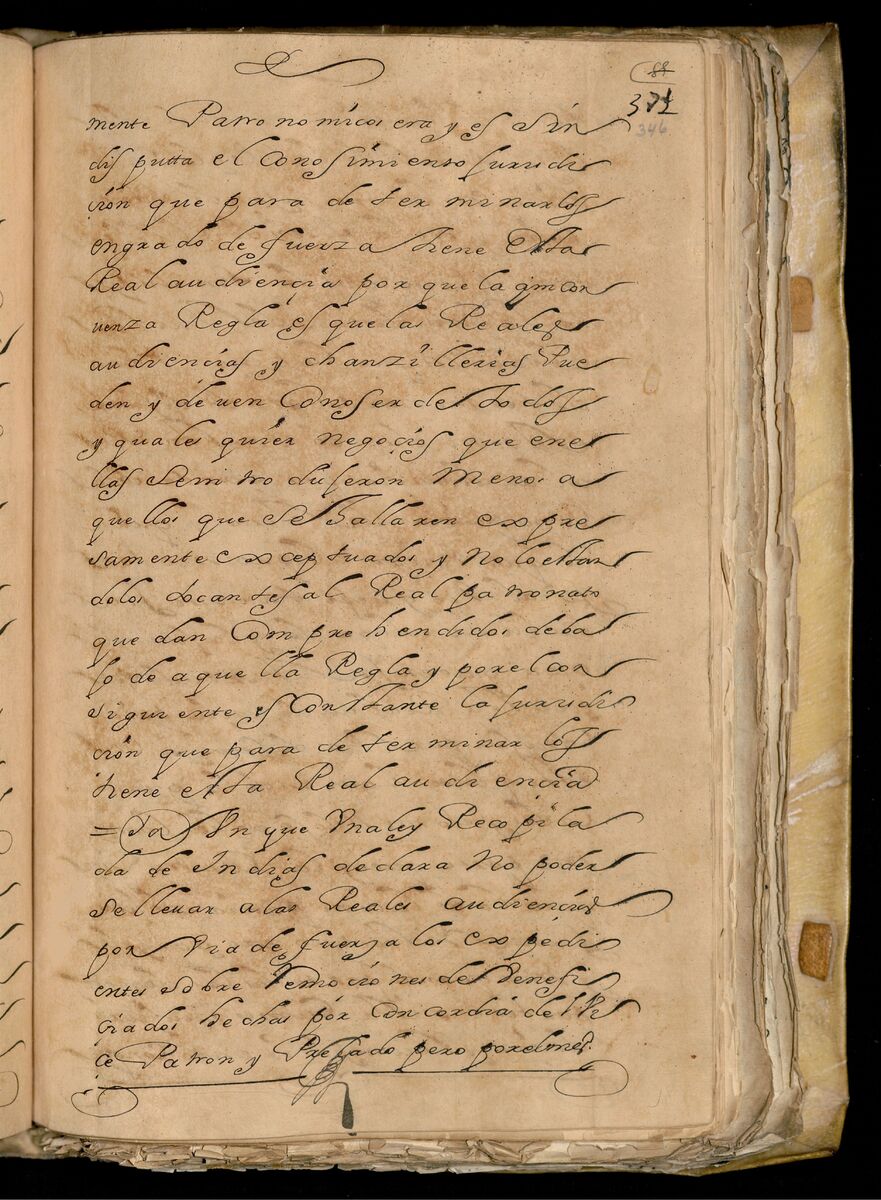 88
371
346
mente Patronomicos era y es sin
disputta el Conosimiento Jurudi
ción que para determinarlos
engrado de fuerza tiene Esta
Real audiencia por que la
uenza Regla es que las Reales
audiencias y chanzillerias Pue
den y déuen Conoser de todos
y quales quier negocios que ene
llas se introduseron Menos a
quellos que se hallaren expre
samente exceptuados y No lo estan
dolos tocantes al Real patronato
que dan Comprehendidos deba
jo de aquella Regla y por el con
siguiente es Constante la Jurudi
ción que para determinar los
tiene esta Real audiencia
= Ya Un que Una ley Recopila
da de Indias declara No poder
se lleuar a las Reales audiencias
por Via de fuerza los expedi
entes sobre Remociones de Benefi
ciados hechas por Concordia del Vi
ce Patron y Prelado pero por el